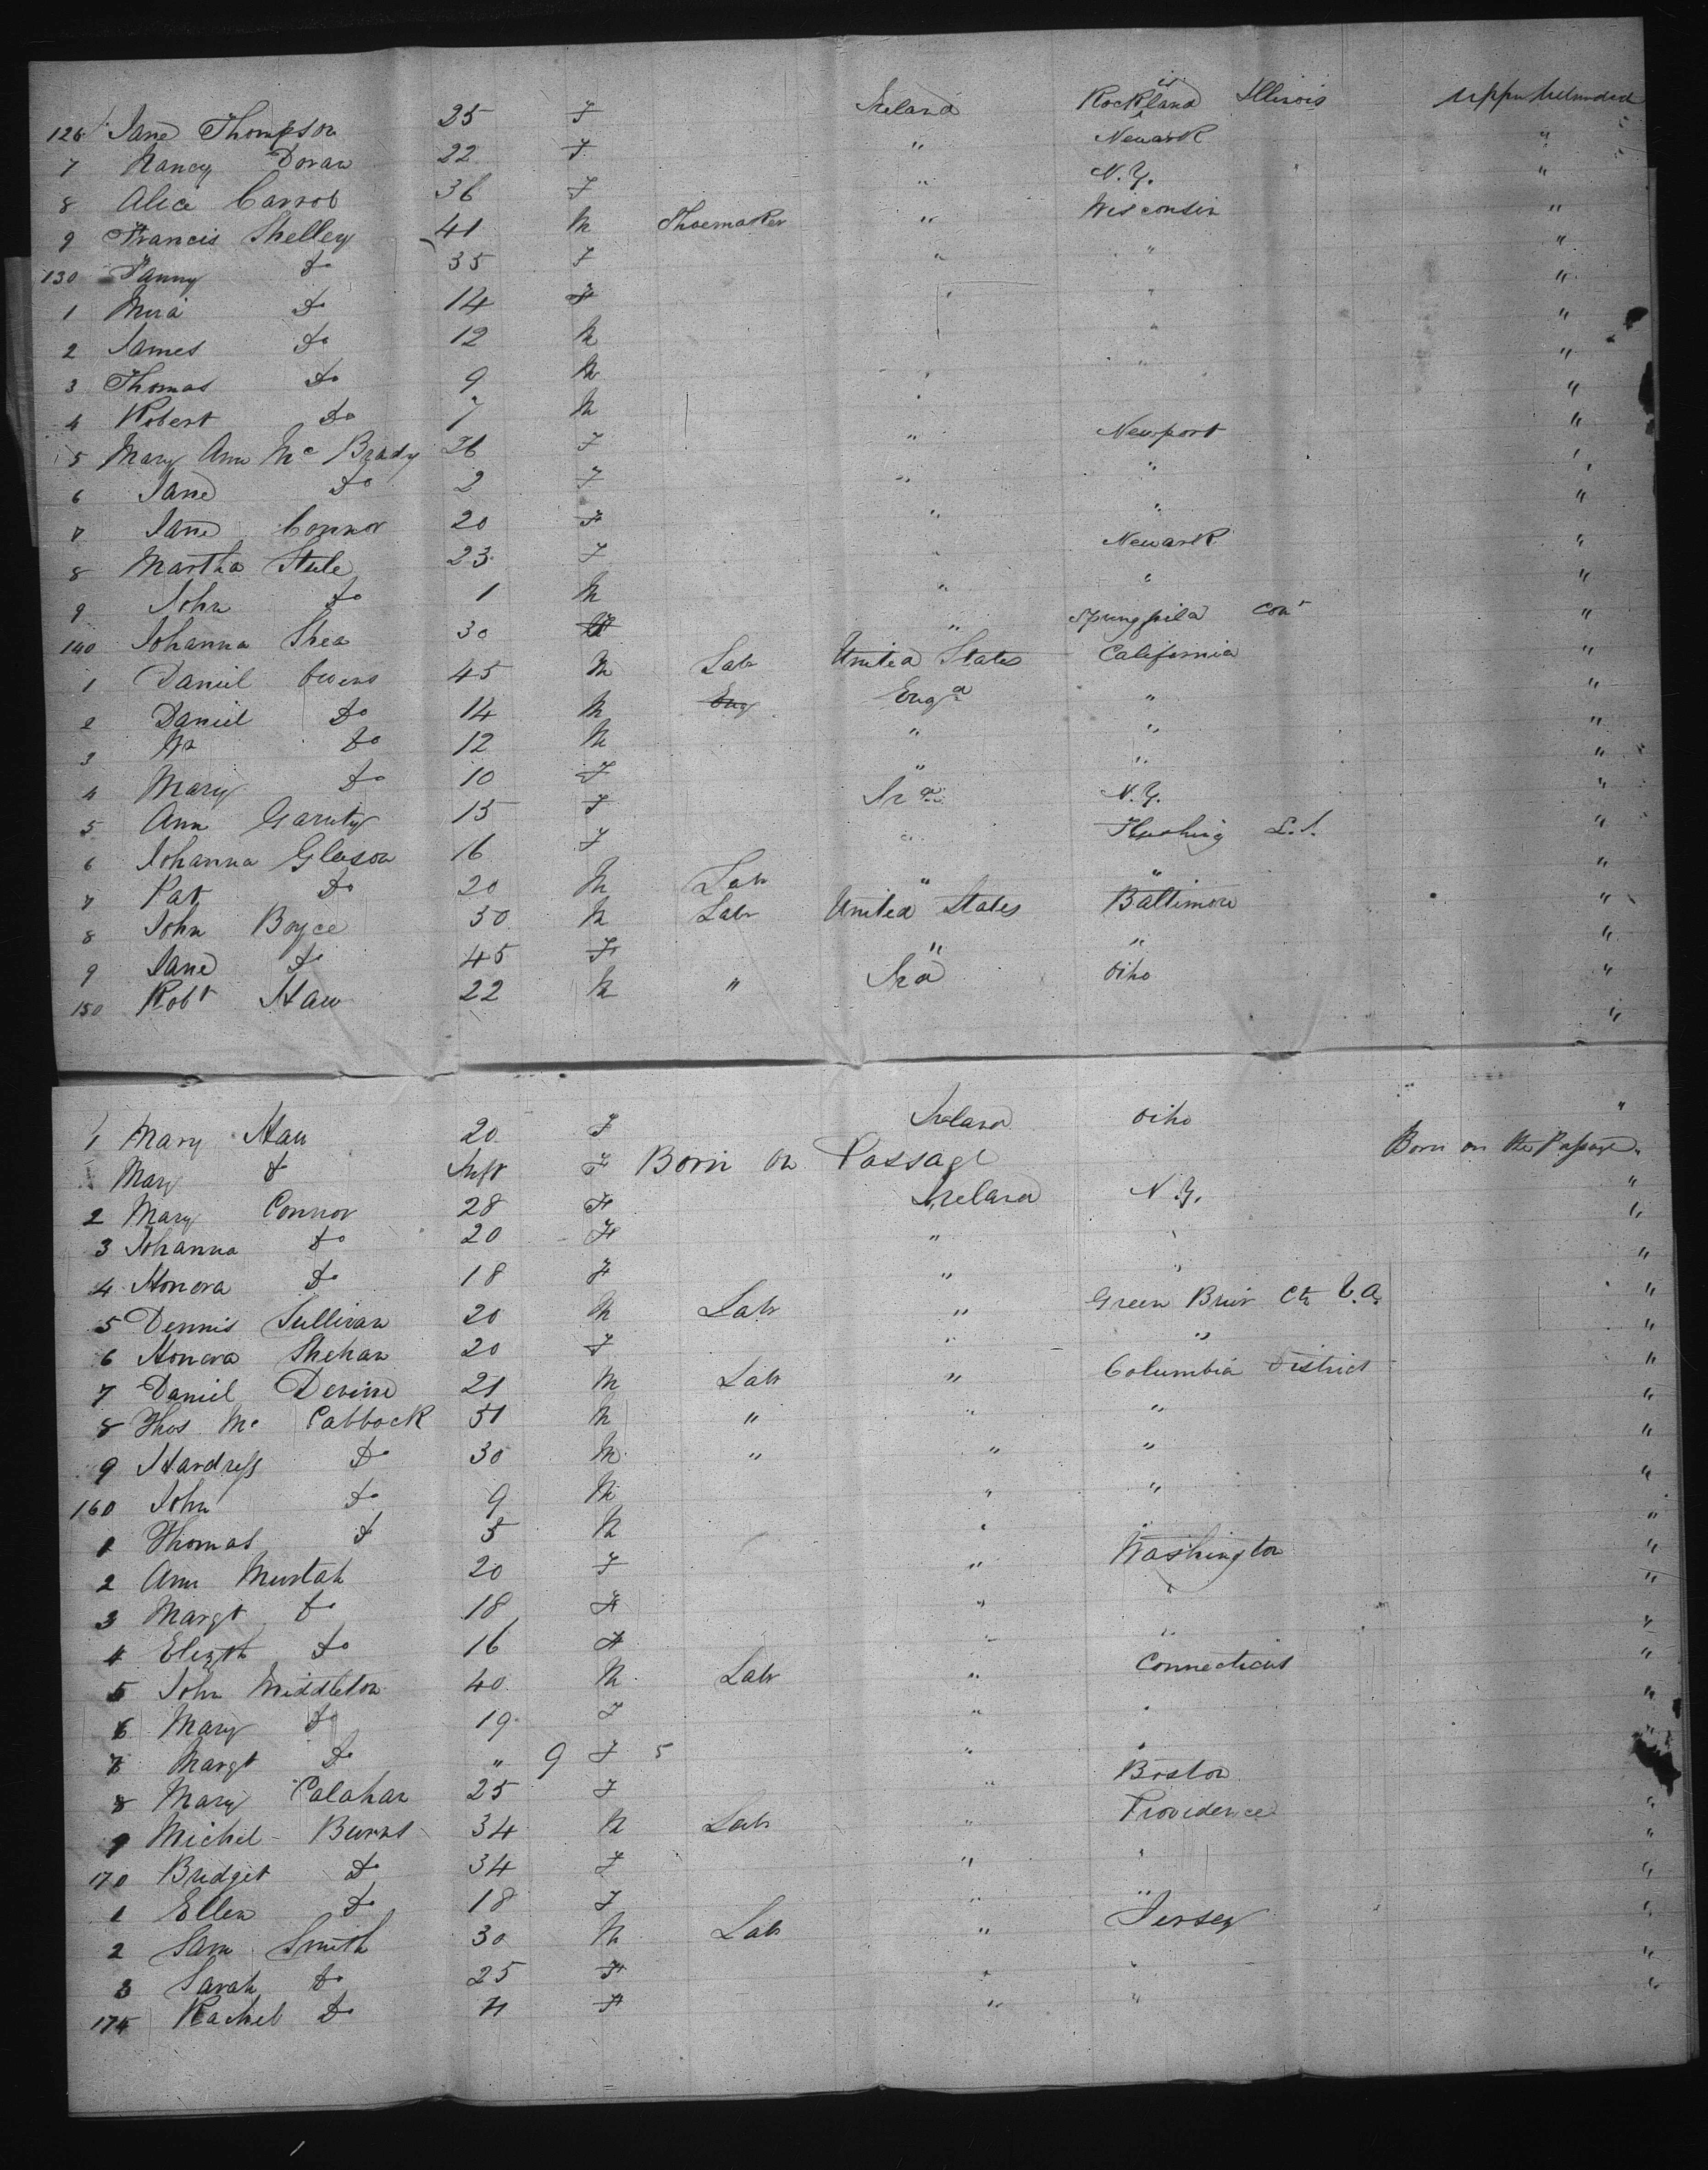 126 Jane Thompson 25 F Ireland Rockisland Illinois Upper
7 Nancy Doran 22 F " Newark "
8 Alice Carrol 36 F " N.Y. "
9 Francis Shelley 41 M Shoemaker " Wisconsin "
130 Fanny Do 35 F " " "
1 Do 14 F " " "
2 James Do 12 M " "
3 Thomas Do 9 M " " "
4 Robert Do 7 M " "
5 Mary Ann Mc Brady 26 F " Newport "
6 Jane Do 2 F " " "
7 Jane Connor 20 F " " "
8 Martha Stele 23 F " Newark "
9 John Do 1 M " " "
140 Johanna Shea 30 F " Springfild Cont "
1 Daniel Owens 45 M Lab United States California "
2 Daniel Do 14 M Eng Engd " "
3 Wm Do 12 M " " "
4 Mary Do 10 F " " "
5 Ann Garrity 15 F Ird N.Y. "
6 Johanna Gleason 16 F " Flushing L.I. "
7 Pat Do 20 M Lab " " "
8 John Boyce 50 M Lab United States Baltimore "
9 Jane Do 45 F " " "
150 Robt Haw 22 M " Ird Oiho "
1 Mary Haw 20 F Ireland Oiho "
Mary Do Inft F Born on Passage Born on the Passage "
2 Mary Connor 28 F Ireland N.Y. "
3 Johanna Do 20 F " " "
4 Honora Do 18 F " " "
5 Dennis Sullivan 20 M Lab " Green Brier Cty V.A. "
6 Honora Shehan 20 F " " "
7 Daniel Devine 21 M Lab " Columbia District "
8 Thos Mc Cabbock 51 M " " " "
9 Hardress Do 30 M " " " "
160 John Do 9 M " " "
1 Thomas Do 5 M " " "
2 Ann Murtah 20 F " Washington "
3 Margt Do 18 F " " "
4 Elizth Do 16 F " " "
5 John Middleton 40 M Lab " Connecticut "
6 Mary Do 19 F " " "
7 Margt Do " 9 F 5 " " "
8 Mary Calahan 25 F " Boston "
9 Michel Burns 34 M Lab " Providence "
170 Bridget Do 34 F " " "
1 Ellen Do 18 F " " "
2 Sam Smith 30 M Lab " Jersey "
3 Sarah Do 25 F " " "
174 Rachel Do 4 F " " "